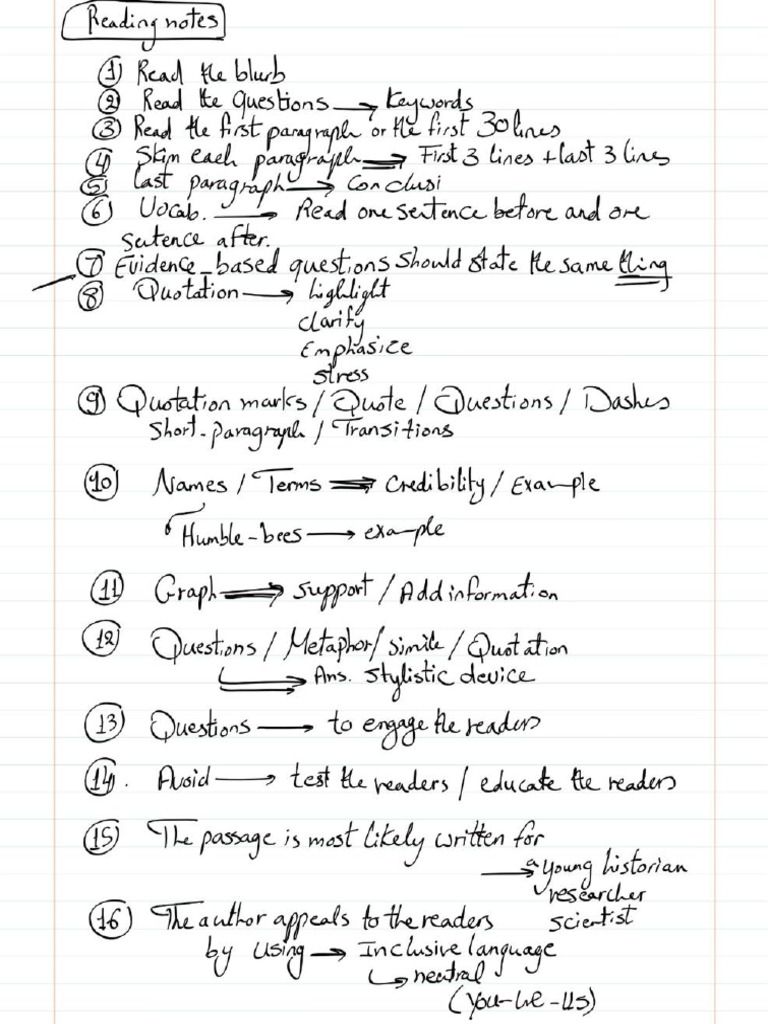 Reading notes
① Read the blurb
② Read the Questions → Keywords
③ Read the first paragraph or the first 30 lines
④ Skim each paragraph ⇒ First 3 lines + last 3 lines
⑤ last paragraph → Conclusi
⑥ Vocab. → Read one sentence before and one
sentence after.
⑦ Evidence_based questions should state the same thing
⑧ Quotation → highlight
clarify
Emphasize
stress
⑨ Quotation marks / Quote / Questions / Dashes
Short-paragraph / Transitions
⑩ Names / Terms ⇒ Credibility / Example
Humble-bees → example
⑪ Graph ⇒ support / Add information
⑫ Questions / Metaphor / simile / Quotation
→ Ans. Stylistic device
⑬ Questions → to engage the readers
⑭. Avoid → test the readers / educate the readers
⑮ The passage is most likely written for
→ a young historian
researcher
scientist
⑯ The author appeals to the readers
by using → Inclusive language
↳ neutral
(you-we-us)